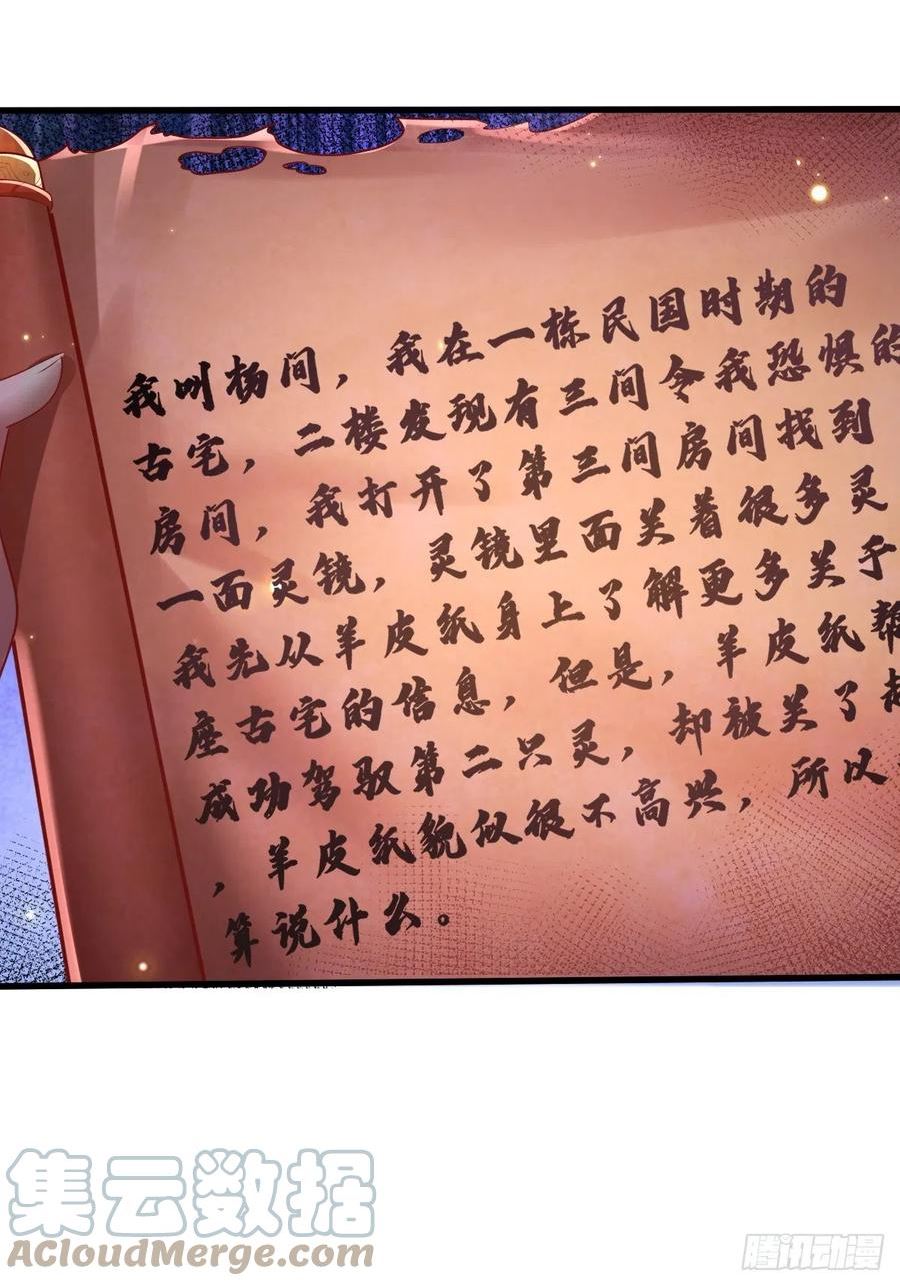 我叫杨间，我在一栋民国时期的
古宅，二楼发现有三间令我恐惧的
房间，我打开了第三间房间找到
一面灵镜，灵镜里面关着很多灵
我先从羊皮纸身上了解更多关于
座古宅的信息，但是，羊皮纸帮
成功驾驭第二只灵，却被关了起
，羊皮纸貌似很不高兴，所以
算说什么。
集云数据
ACloudMerge.com
腾讯动漫